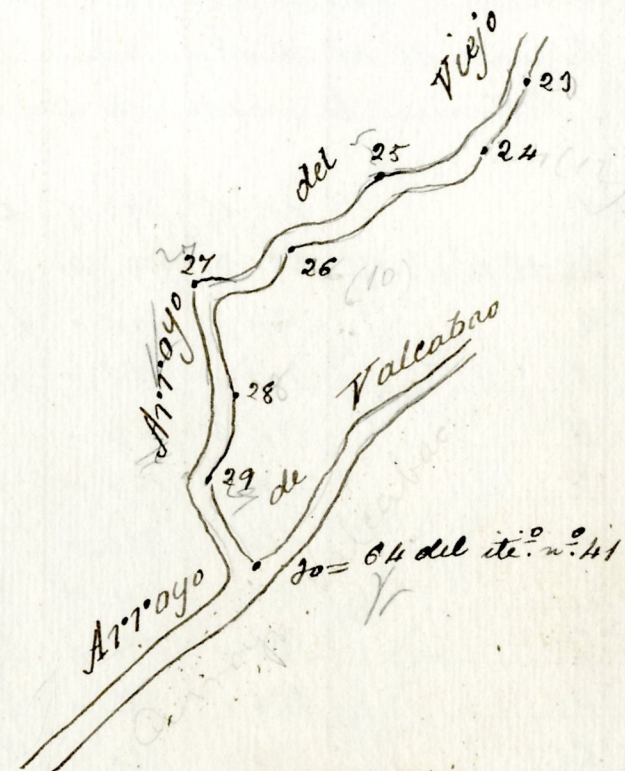 Arroyo del Viejo
23
24
25
26
27
28
29
Arroyo de Valcabao
30 = 64 del ite.º n.º 41
(10)